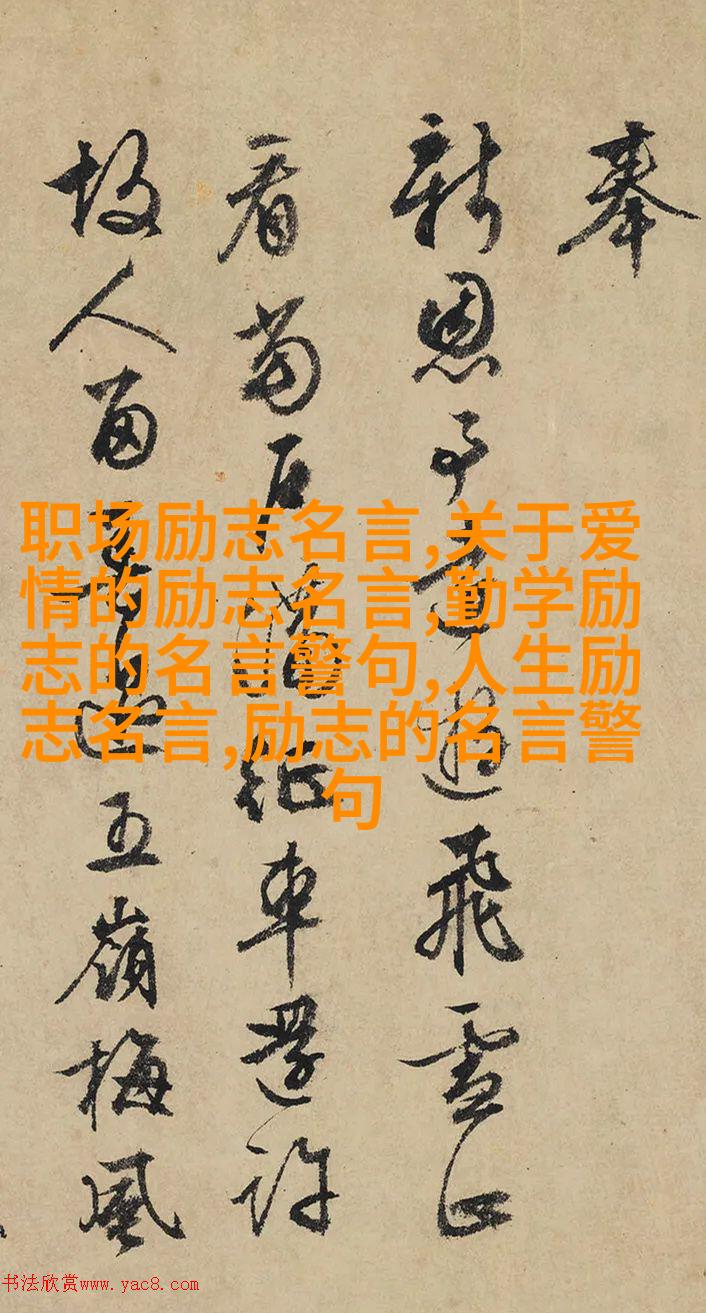 奉
新恩予遊飛雪正
看當户征車還許
故人留五嶺梅風
职场励志名言,关于爱
情的励志名言,勤学励
志的名言警句,人生励
志名言,励志的名言警
句
书法欣赏www.yac8.com